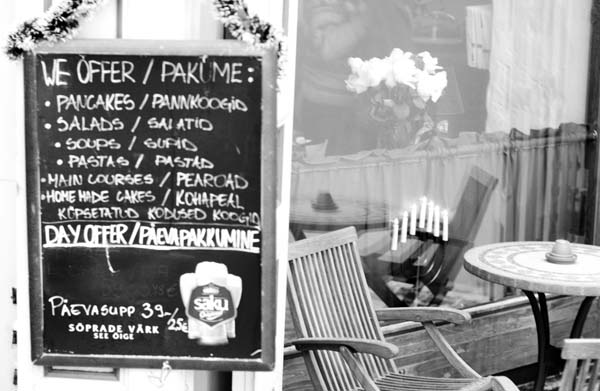 WE ÖFFER / PAKUME:
• PANCAKES / PANNKOOGID
• SALADS / SALATID
• SOUPS / SUPID
• PASTAS / PASTAD
• MAIN COURSES / PEAROAD
• HOME MADE CAKES / KOHAPEAL
KÜPSETATUD KODUSED KOOGID
DAY OFFER / PÄEVAPAKKUMINE
PÄEVASUPP 39.-/25€
saku
Originaal
SÕPRADE VÄRK
SEE ÕIGE